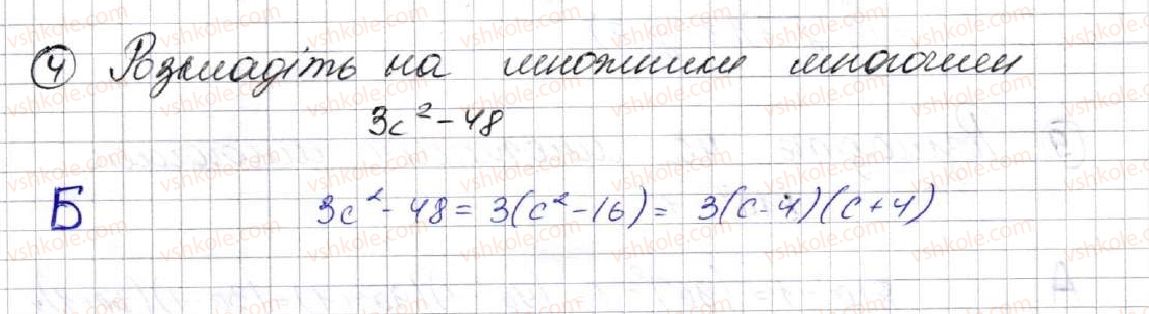 ④ Розкладіть на множники многочлен
3c² - 48
Б 3c² - 48 = 3(c² - 16) = 3(c - 4)(c + 4)